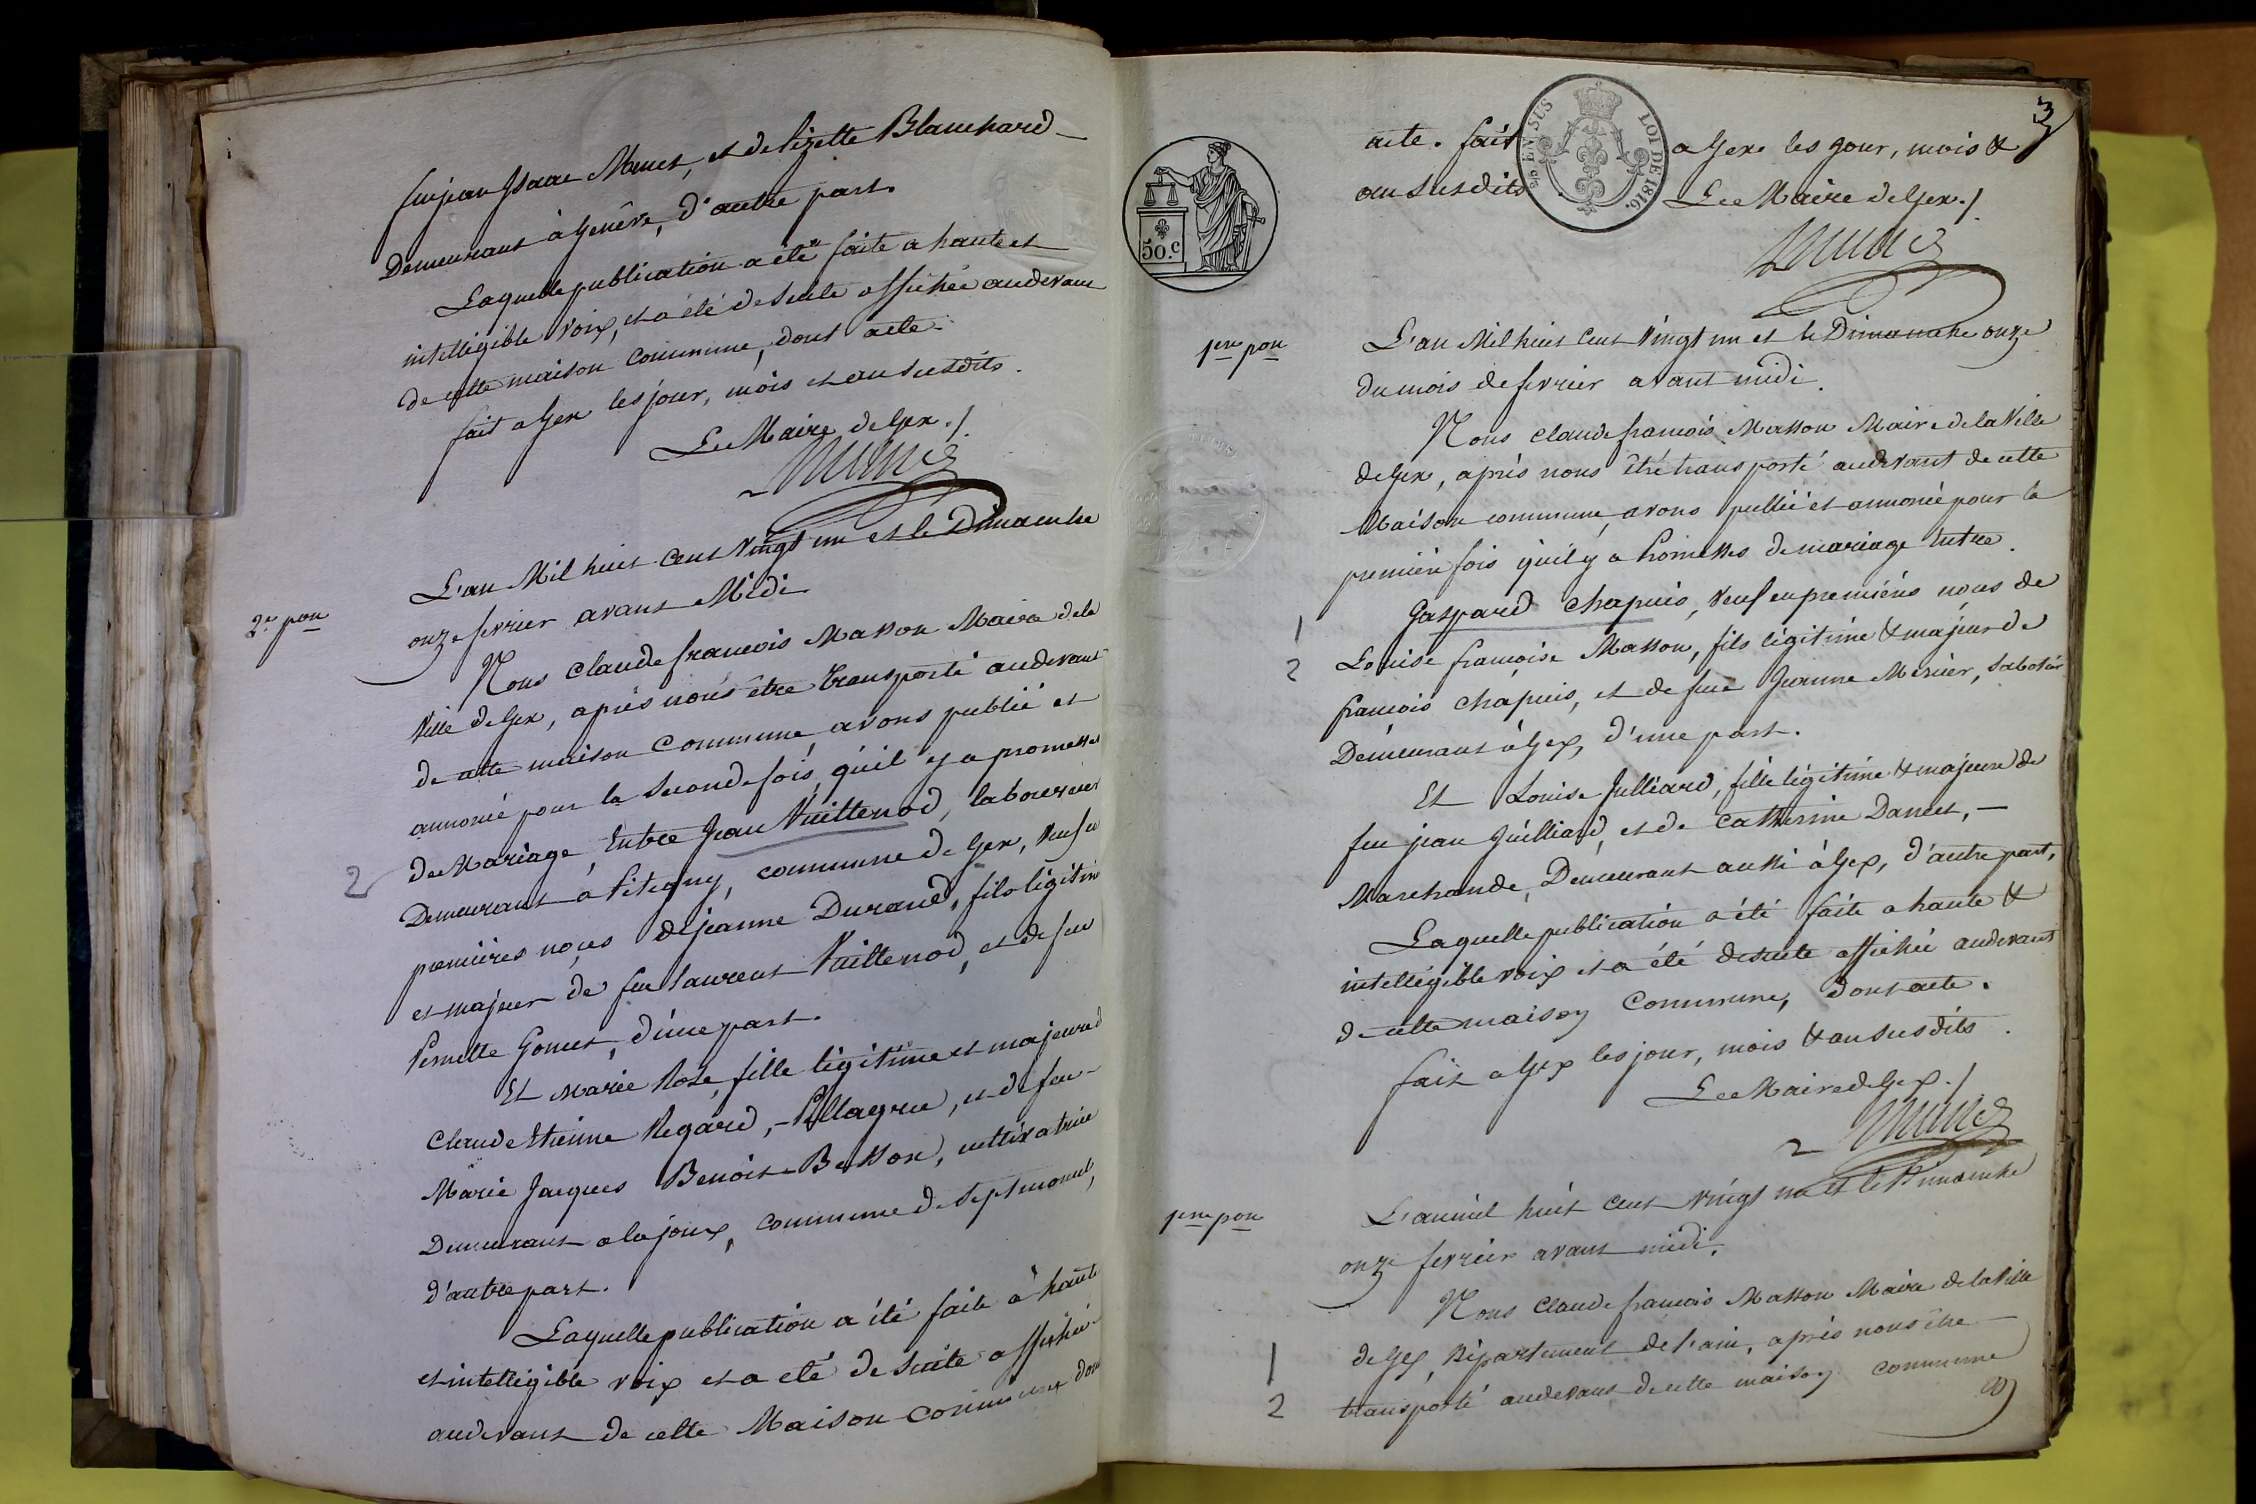 feu jean Isaac Monet, et de Lizette Blanchard
Demeurant à Genêve, d'autre part.
Laquelle publication a été faite a haute et
intelligible voix, et a été de suite affichée audevant
de cette maison commune, dont acte.
fait a Gex les jour, mois et an susdits.
Le Maire de Gex ./.
2e pon
L'an Mil huit cent Vingt un et le Dimanche
onze fevrier avant Midi.
Nous Claude francois Masson Maire de la
Ville de Gex, après nous être transporté audevant
de cette maison Commune, avons publié et
annoncé pour la seconde fois, qu'il y a promesses
2 de Mariage, Entre Jean Vuittenod, laboureur
Demeurant à Pitegny, commune de Gex, Veuf en
premières noçes de jeanne Durand, fils légitime
et majeur de feu Laurent Vuittenod, et de feu
Pernette Gonet, d'une part.
Et Marie Rose, fille légitime et majeure d
Claude Etienne Regard, - Pellagrue, et de feu -
Marie Jacques Benoit Besson, cultivatrice
Demeurant a la joux, commune de Septmoncel,
d'autre part.
Laquelle publication a été faite à haute
et intelligible voix et a été de suite affichée
audevant de cette Maison commune don
3
acte. fait a Gex les jour, mois &
an susdits
EN SUS
LOI DE 1816.
50.c
Le Maire de Gex ./.
1ere pon
L'an Mil huit Cent Vingt un et le Dimanche onze
du mois de fevrier avant midi.
Nous Claude francois Masson Maire de la Ville
de Gex, après nous être transporté audevant de cette
Maison commune, avons publié et annoncé pour la
première fois qu'il y a Promesses de mariage Entre
1 Gaspard Chapuis, Veuf en premiéres noces de
2 Louise françoise Masson, fils légitime & majeur de
françois Chapuis, et de feue Jeanne Mérier, sabotier
Demeurant à Gex, d'une part.
Et Louise Julliard, fille légitime & majeure de
feu jean Juilliard, et de Catherine Dancet, -
Marchande, Demeurant aussi à Gex, d'autre part,
Laquelle publication a été faite a haute &
intelligible voix et a été desuite affichée audevant
de cette maison Commune, dont acte.
fait a Gex les jour, mois & an susdits.
Le Maire de Gex ./.
1ere pon
L'an mil huit cent vingt un et le Dimanche
onze fevrier avant midi.
Nous Claude francois Masson Maire de la Ville
1 de Gex, Département de l'ain, après nous être
2 transporté audevant de cette maison commune